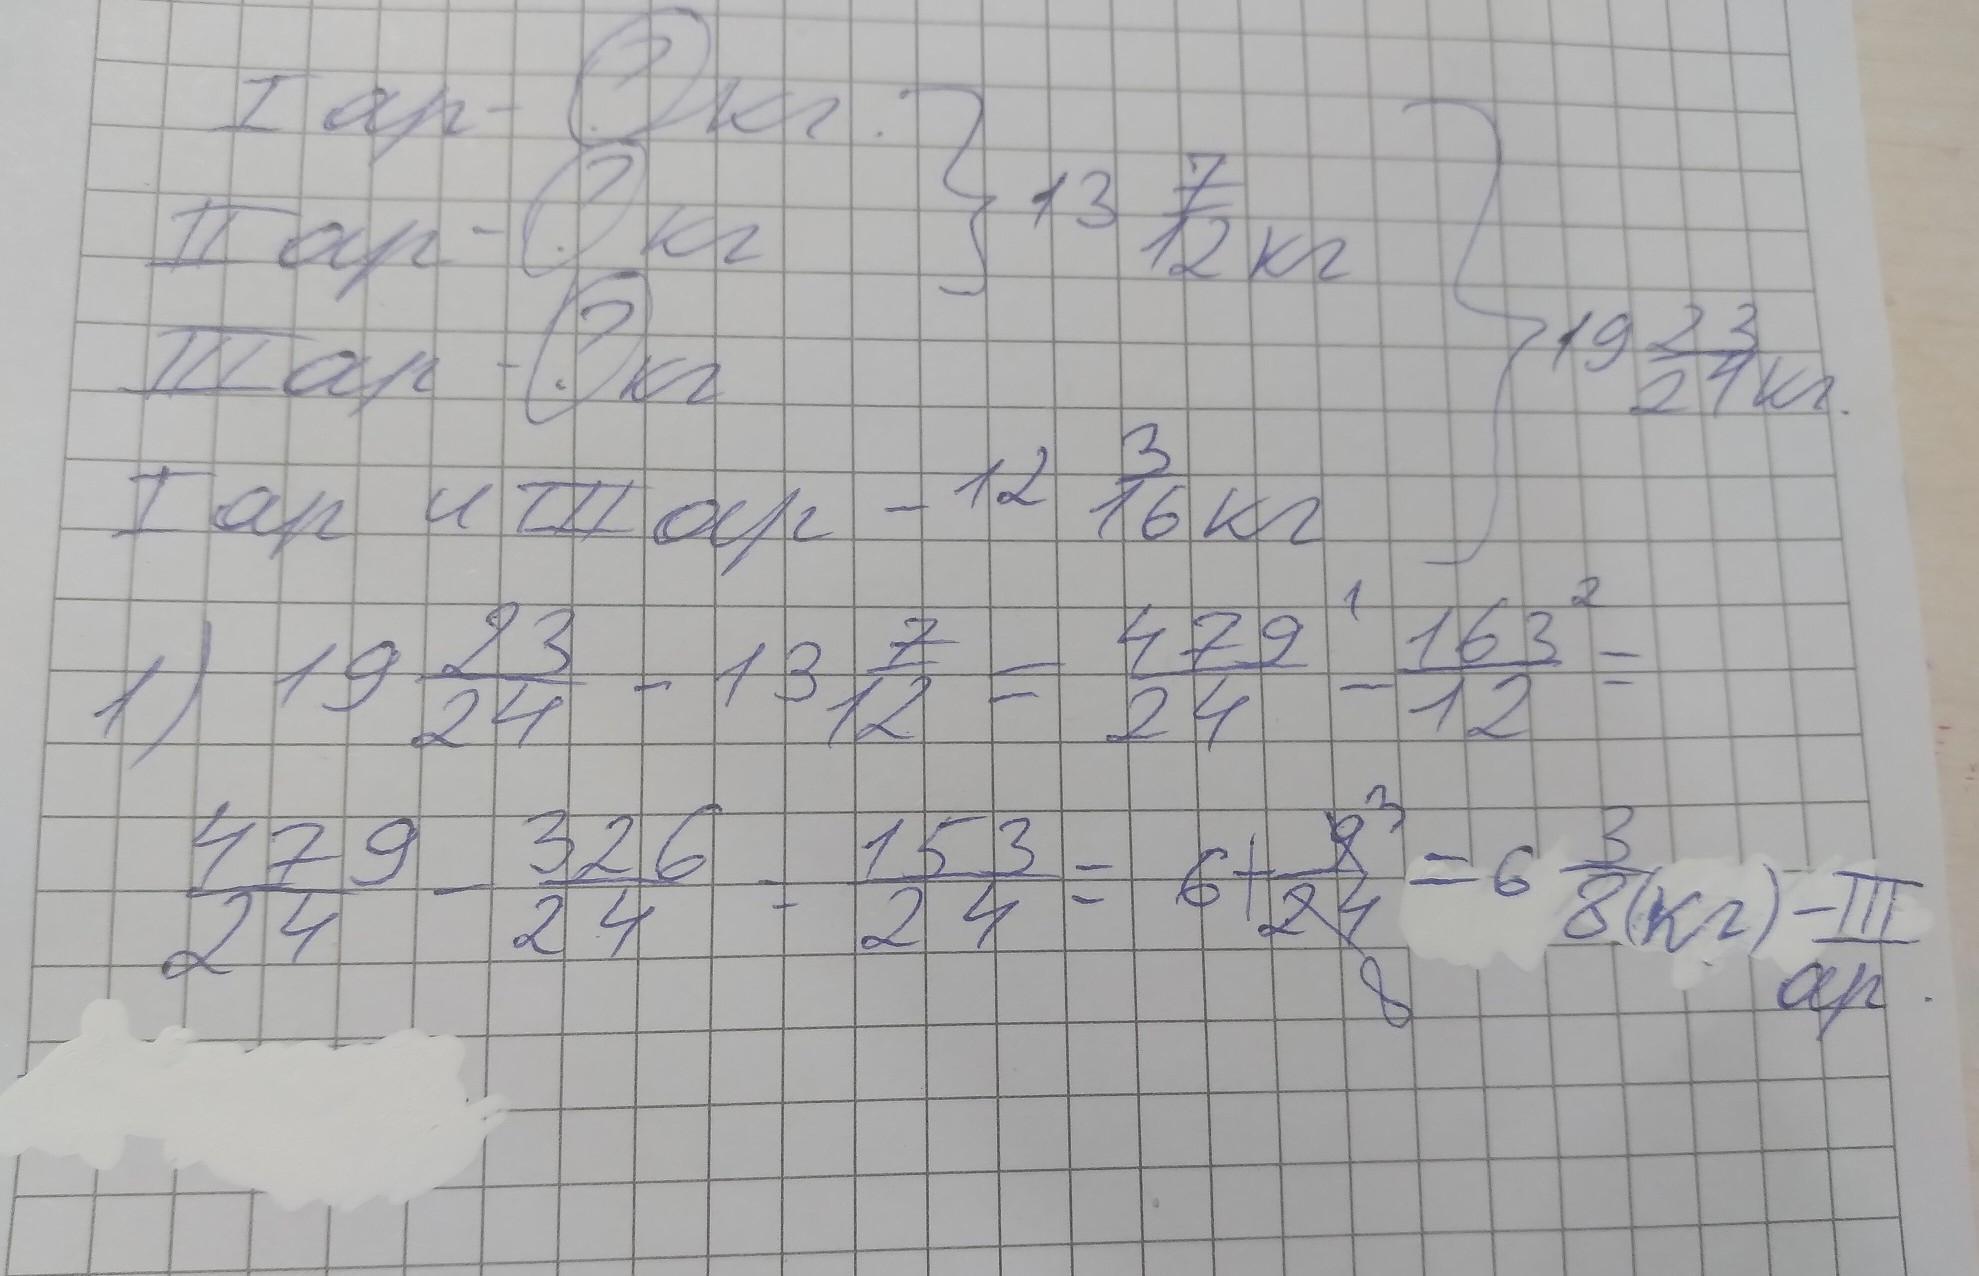 I ар - ? кг. } 13 7/12 кг
II ар - ? кг
III ар - ? кг } 19 23/24 кг.
I ар и III ар - 12 3/16 кг
1) 19 23/24 - 13 7/12 = 479/24 ¹ - 163/12 ² =
479/24 - 326/24 = 153/24 = 6 + 9/24 ³ 8 = 6 3/8 (кг) - III
ар.